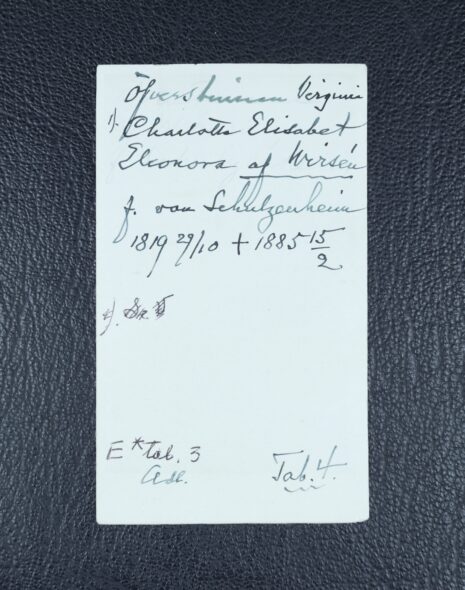 Öfverstinnan Virginia
1). Charlotta Elisabet
Eleonora af Wirsén
f. von Schulzenheim
1819 29/10 + 1885 15/2
E* tab. 3
Adl.
Tab. 4.